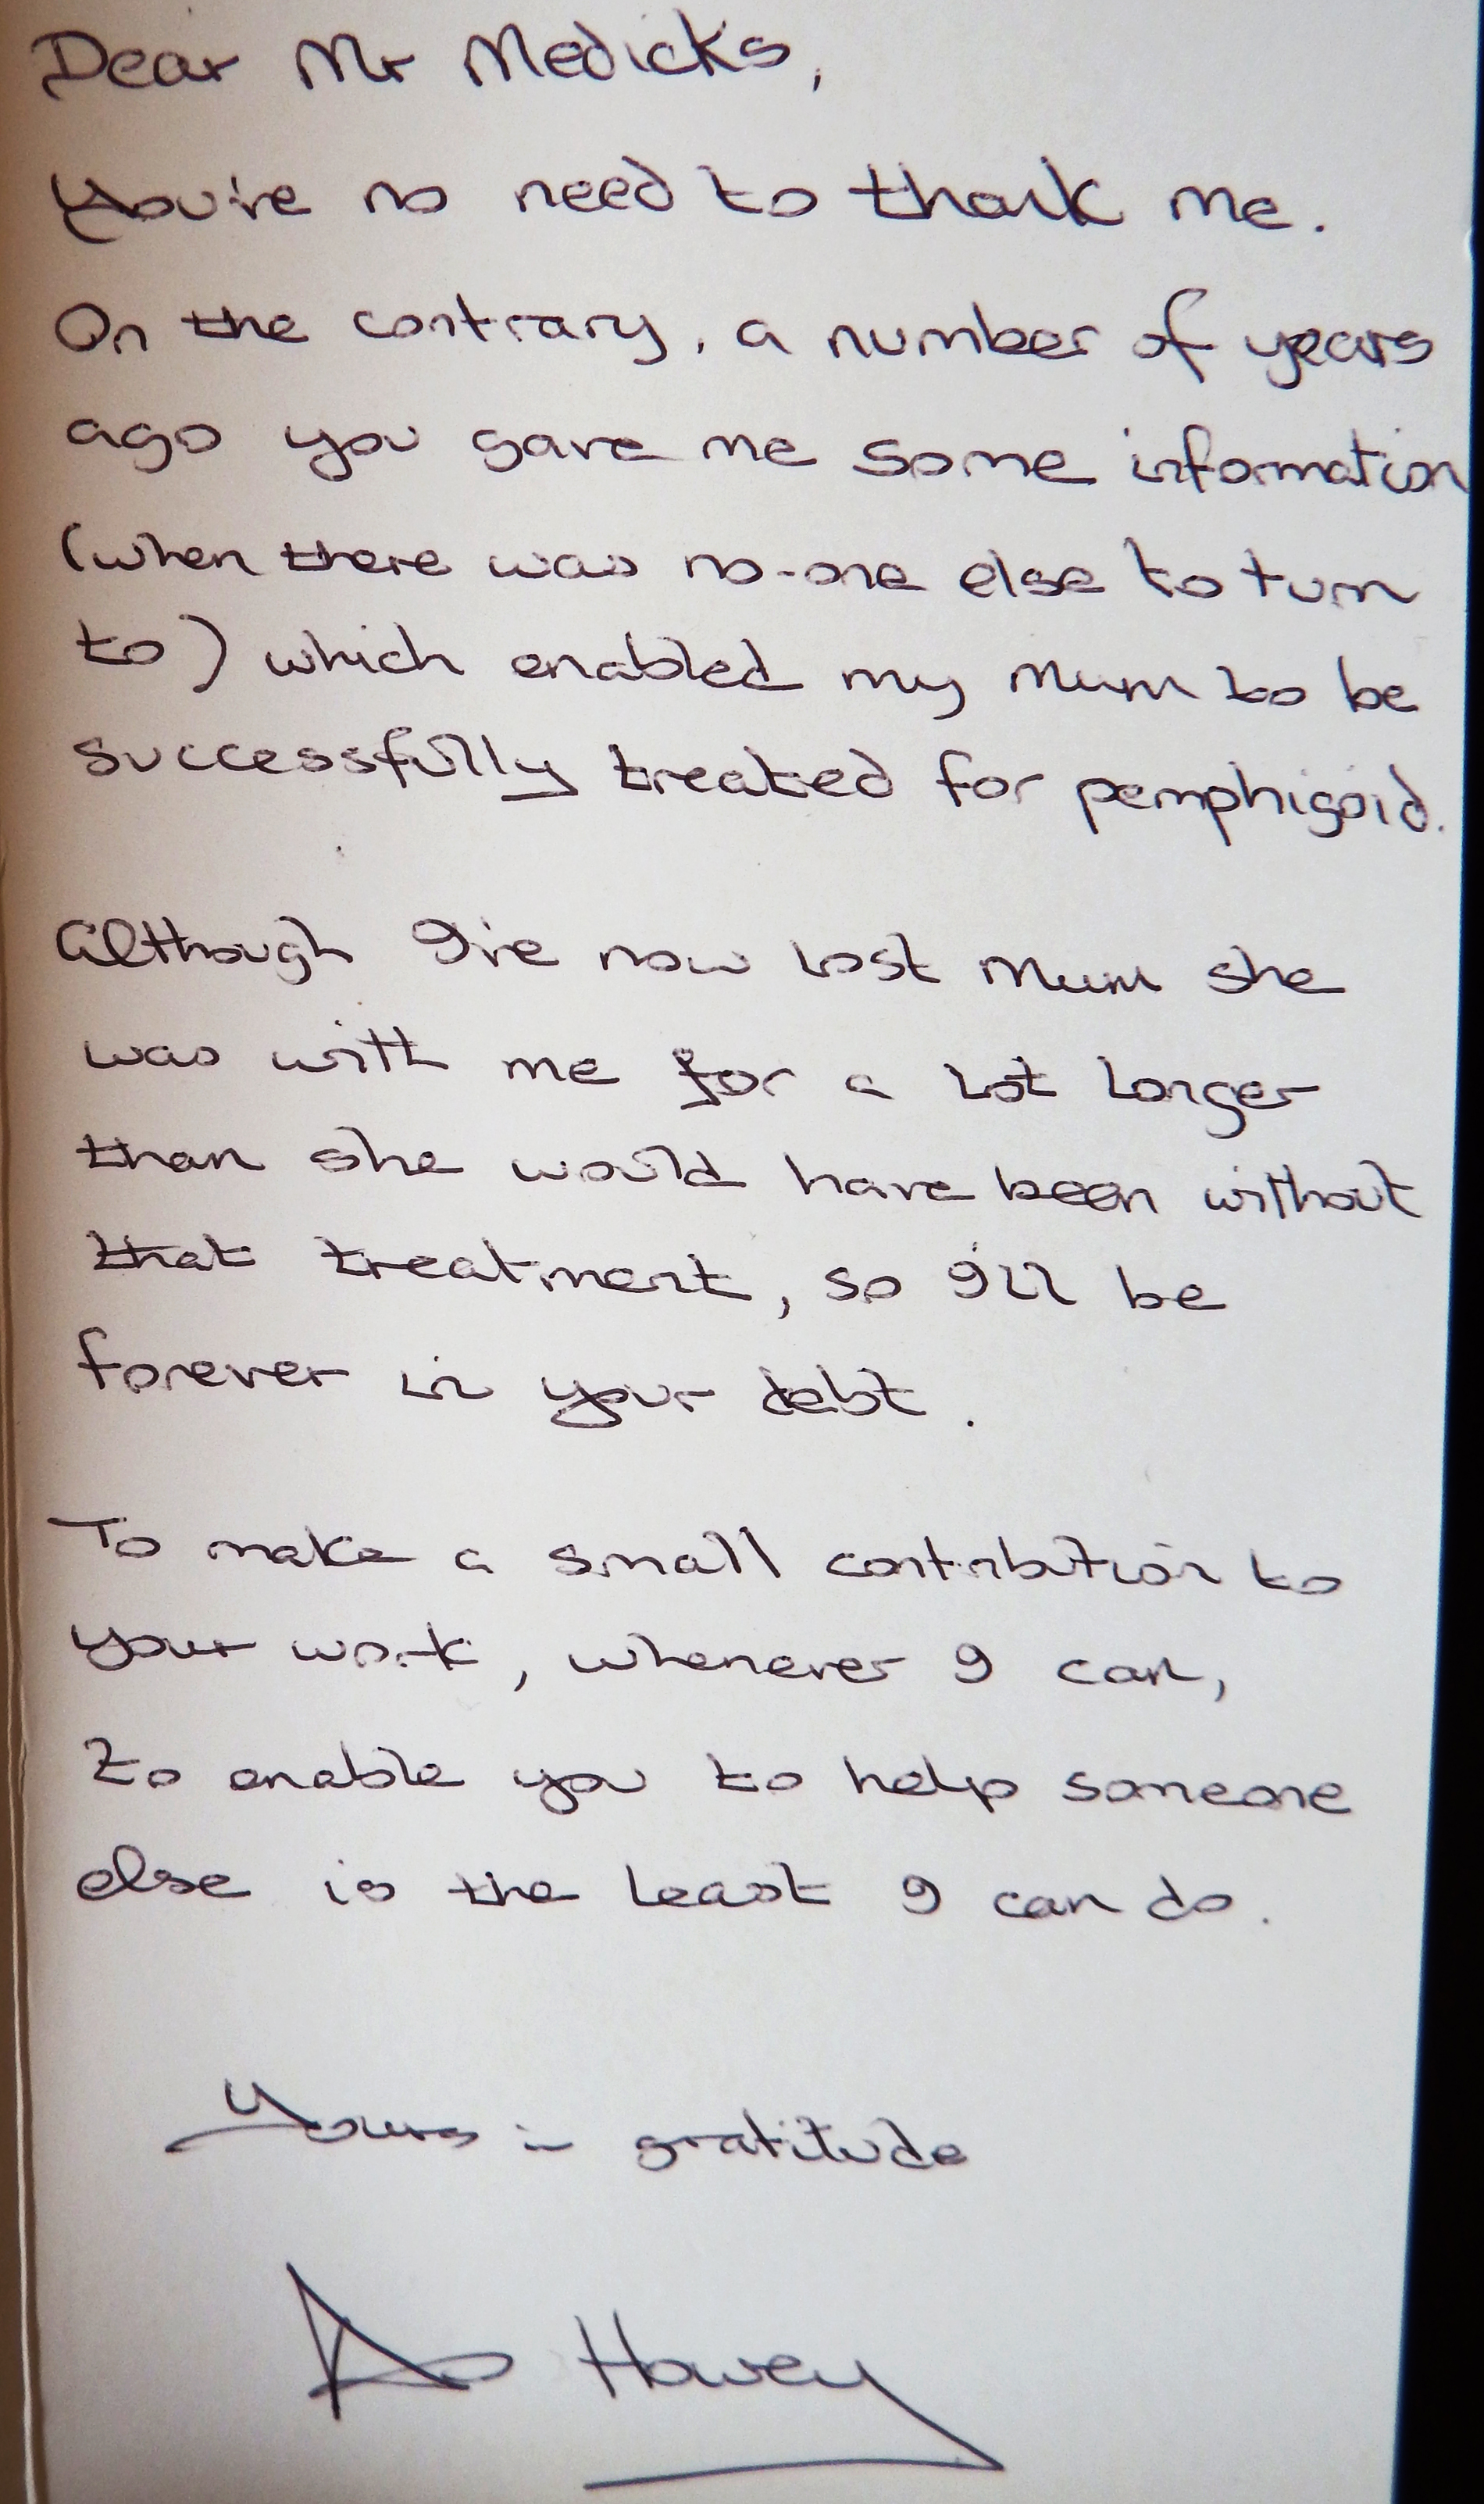 Dear Mr Medicks,
You've no need to thank me.
On the contrary, a number of years
ago you gave me some information
(when there was no-one else to turn
to) which enabled my Mum to be
successfully treated for pemphigoid.
Although I've now lost Mum she
was with me for a lot longer
than she would have been without
that treatment, so I'll be
forever in your debt.
To make a small contribution to
your work, whenever I can,
to enable you to help someone
else is the least I can do.
Yours in gratitude
Howey